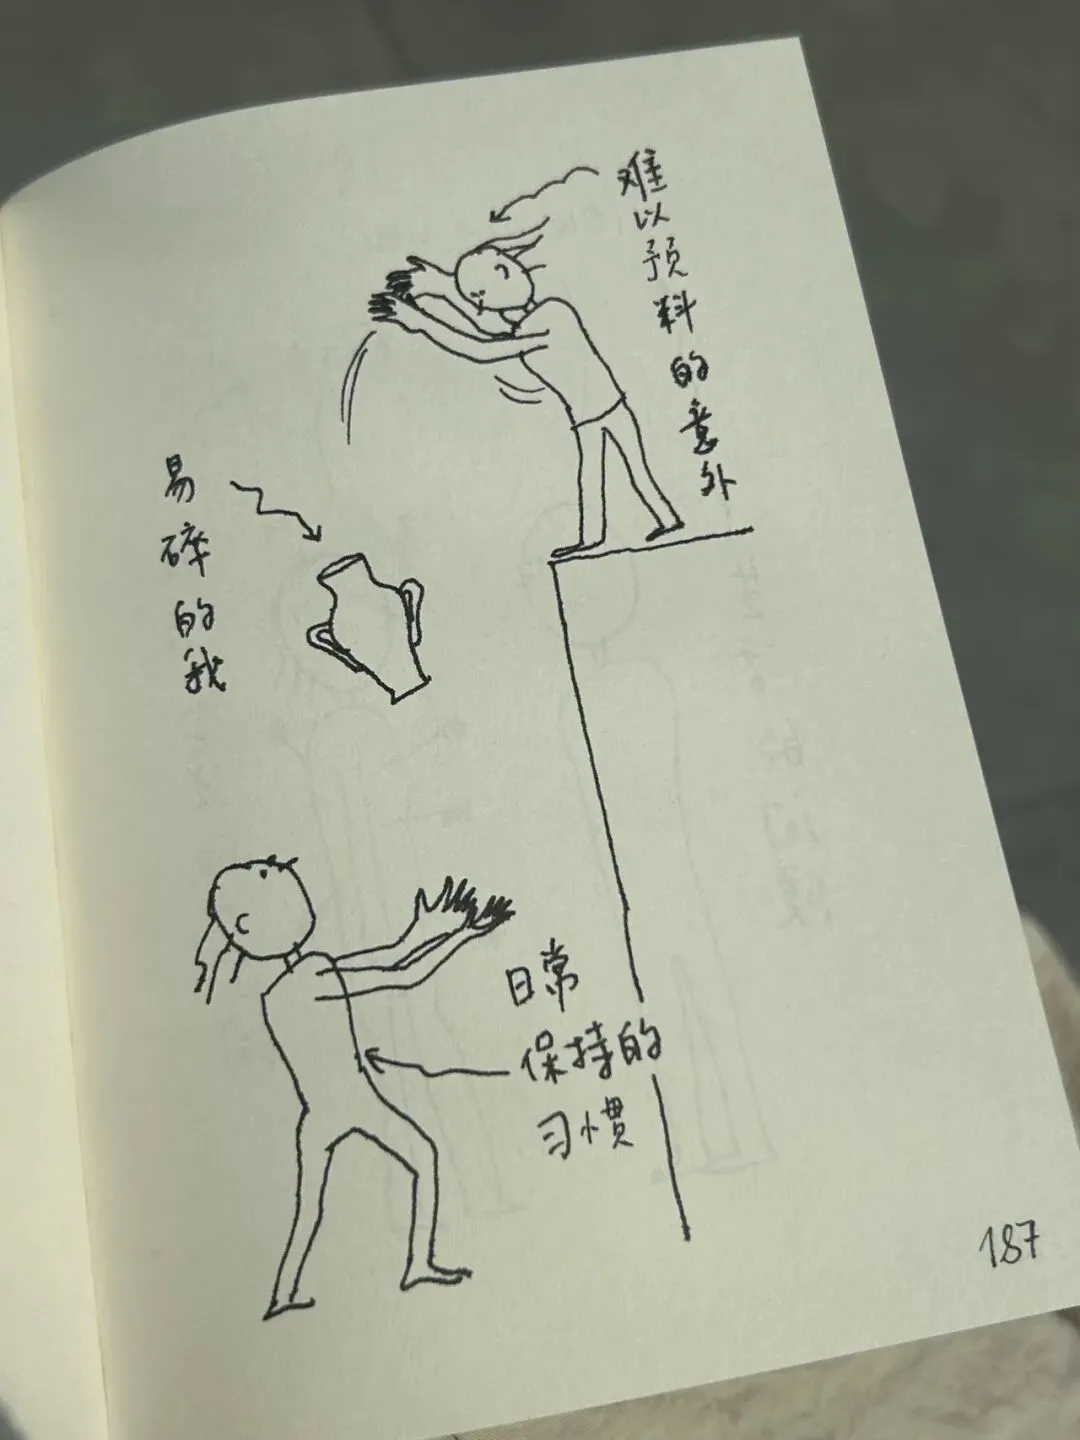 难以预料的意外
易碎的我
日常
保持的
习惯
187